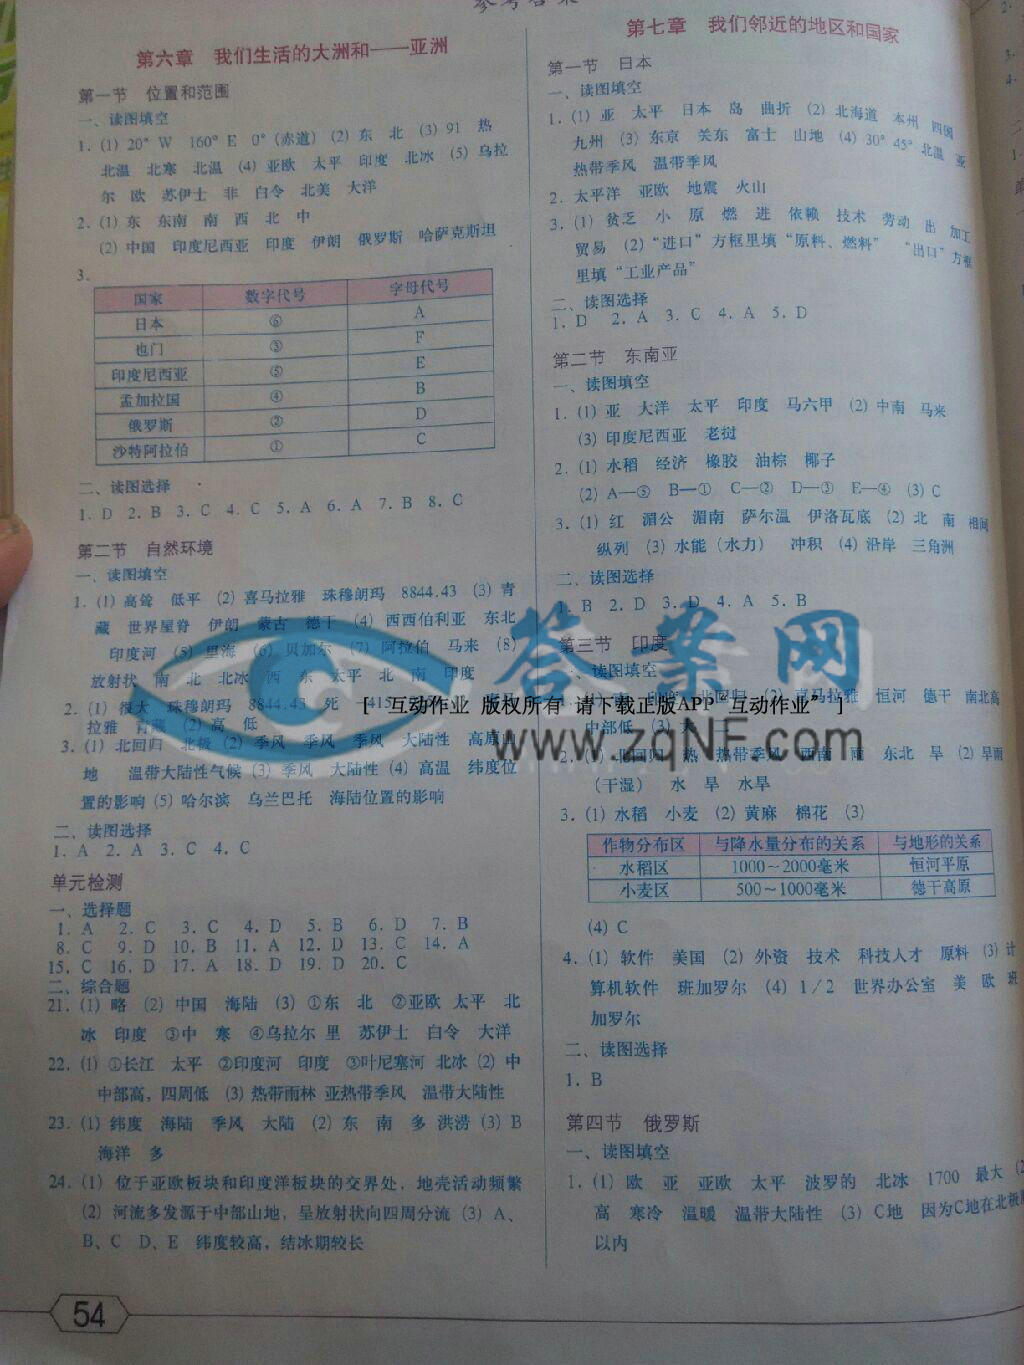 参考答案
第六章 我们生活的大洲和——亚洲
第一节 位置和范围
一、读图填空
1. (1) 20° W 160° E 0° (赤道) (2) 东 北 (3) 91 热
北温 北寒 北温 (4) 亚欧 太平 印度 北冰 (5) 乌拉
尔 欧 苏伊士 非 白令 北美 大洋
2. (1) 东 东南 南 西 北 中
(2) 中国 印度尼西亚 印度 伊朗 俄罗斯 哈萨克斯坦
3.
国家 数字代号 字母代号
日本 ⑥ A
也门 ③ F
印度尼西亚 ⑤ E
孟加拉国 ④ B
俄罗斯 ② D
沙特阿拉伯 ① C
二、读图选择
1. D 2. B 3. C 4. C 5. A 6. A 7. B 8. C
第二节 自然环境
一、读图填空
1. (1) 高耸 低平 (2) 喜马拉雅 珠穆朗玛 8844.43 (3) 青
藏 世界屋脊 伊朗 蒙古 德干 (4) 西西伯利亚 东北
印度河 (5) 里海 (6) 贝加尔 (7) 阿拉伯 马来 (8)
放射状 南 北 北冰 西 东 太平 北 南 印度
2. (1) 很大 珠穆朗玛 8844.43 死 415
拉雅 青藏 (2) 高 低
3. (1) 北回归 北极 (2) 季风 季风 季风 大陆性 高原山
地 温带大陆性气候 (3) 季风 大陆性 (4) 高温 纬度位
置的影响 (5) 哈尔滨 乌兰巴托 海陆位置的影响
二、读图选择
1. A 2. A 3. C 4. C
单元检测
一、选择题
1. A 2. C 3. C 4. D 5. B 6. D 7. B
8. C 9. D 10. B 11. A 12. D 13. C 14. A
15. C 16. D 17. A 18. D 19. D 20. C
二、综合题
21. (1) 略 (2) 中国 海陆 (3) ①东 北 ②亚欧 太平 北
冰 印度 ③中 寒 ④乌拉尔 里 苏伊士 白令 大洋
22. (1) ①长江 太平 ②印度河 印度 ③叶尼塞河 北冰 (2) 中
中部高，四周低 (3) 热带雨林 亚热带季风 温带大陆性
23. (1) 纬度 海陆 季风 大陆 (2) 东 南 多 洪涝 (3) B
海洋 多
24. (1) 位于亚欧板块和印度洋板块的交界处，地壳活动频繁
(2) 河流多发源于中部山地，呈放射状向四周分流 (3) A、
B、C、D、E 纬度较高，结冰期较长
54
第七章 我们邻近的地区和国家
第一节 日本
一、读图填空
1. (1) 亚 太平 日本 岛 曲折 (2) 北海道 本州 四国
九州 (3) 东京 关东 富士 山地 (4) 30° 45° 北温 亚
热带季风 温带季风
2. 太平洋 亚欧 地震 火山
3. (1) 贫乏 小 原 燃 进 依赖 技术 劳动 出 加工
贸易 (2) “进口”方框里填“原料、燃料” “出口”方框
里填“工业产品”
二、读图选择
1. D 2. A 3. C 4. A 5. D
第二节 东南亚
一、读图填空
1. (1) 亚 大洋 太平 印度 马六甲 (2) 中南 马来
(3) 印度尼西亚 老挝
2. (1) 水稻 经济 橡胶 油棕 椰子
(2) A—⑤ B—① C—② D—③ E—④ (3) C
3. (1) 红 湄公 湄南 萨尔温 伊洛瓦底 (2) 北 南 相间
纵列 (3) 水能（水力） 冲积 (4) 沿岸 三角洲
二、读图选择
1. B 2. D 3. D 4. A 5. B
第三节 印度
一、读图填空
印度 北回归 (2) 喜马拉雅 恒河 德干 南北高
中部低 (3)
[ 互动作业 版权所有 请下载正版APP“互动作业” ]
答案网
www.zqNF.com
2. (1) 北回归 热 热带季风 西南 雨 东北 旱 (2) 旱雨
（干湿） 水 旱 水旱
3. (1) 水稻 小麦 (2) 黄麻 棉花 (3)
作物分布区 与降水量分布的关系 与地形的关系
水稻区 1000～2000毫米 恒河平原
小麦区 500～1000毫米 德干高原
(4) C
4. (1) 软件 美国 (2) 外资 技术 科技人才 原料 (3) 计
算机软件 班加罗尔 (4) 1/2 世界办公室 美 欧 班
加罗尔
二、读图选择
1. B
第四节 俄罗斯
一、读图填空
1. (1) 欧 亚 亚欧 太平 波罗的 北冰 1700 最大 (2)
高 寒冷 温暖 温带大陆性 (3) C地 因为C地在北极
以内